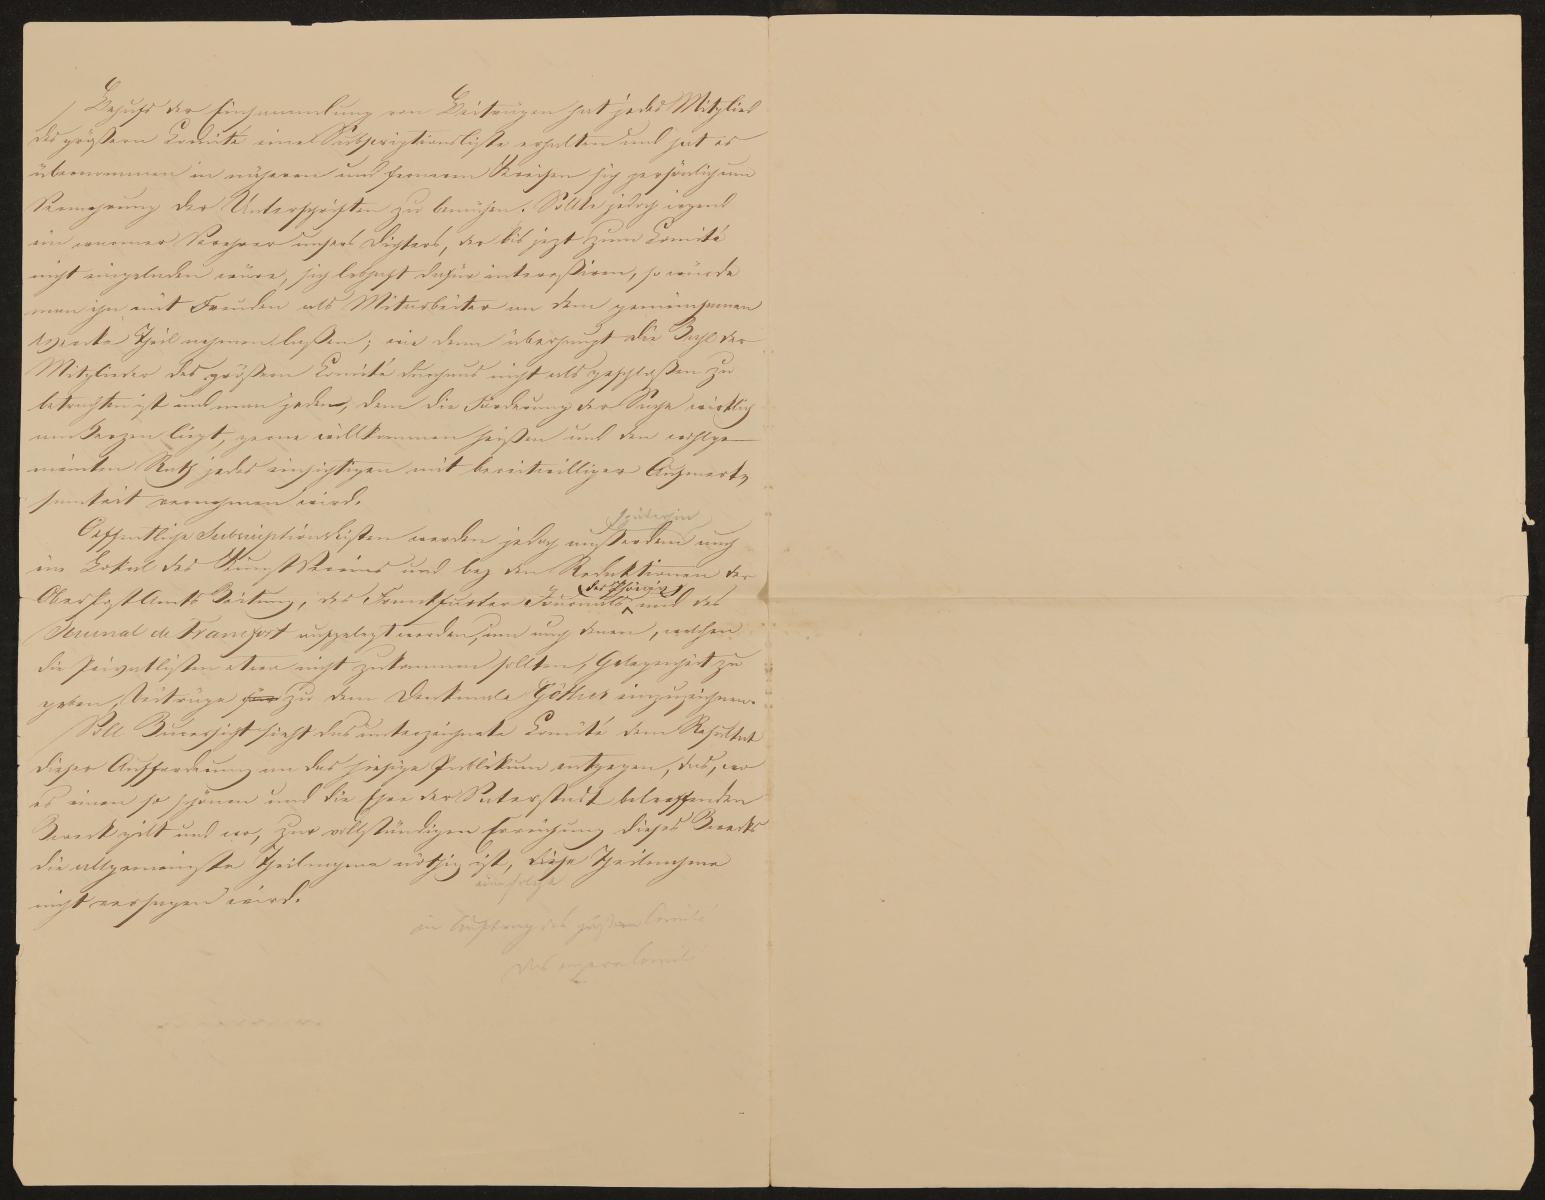 Behufs der Einsammlung von Beiträgen hat jedes Mitglied
des größern Comité eine Subscriptionsliste erhalten und hat es
übernommen in näheren und fernern Kreisen sich persönlich um
Vermehrung der Unterschriften zu bemühen. Sollte jedoch irgend
ein warmer Verehrer unsers Dichters, der bis jezt zum Comité
nicht eingeladen wäre, sich lebhaft dafür interessiren, so würde
man ihn mit Freuden als Mitarbeiter an dem gemeinsamen
Werke Theil nehmen laßen; wie denn überhaupt die Zahl der
Mitglieder des größern Comité durchaus nicht als geschloßen zu
betrachten ist und man jeden, dem die Förderung der Sache wirklich
am Herzen liegt, gerne willkommen heißen und den wohlge-
meinten Rath jedes einsichtigen mit bereitwilliger Aufmerk-
samkeit vernehmen wird.
späterhin
Oeffentliche Subscriptionslisten werden jedoch außerdem auch
im Lokal des Kunst Vereins und bey den Redaktionen der
OberPostAmts Zeitung, des Frankfurter Journals und des
des Phönix
Journal de Francfort aufgelegt werden, um auch denen, welchen
die Privatlisten etwa nicht zukommen sollten, Gelegenheit zu
geben, Beiträge für zu dem Denkmale Göthes einzuzeichnen.
Voll Zuversicht sieht das unterzeichnete Comité dem Resultat
dieser Aufforderung an das hiesige Publikum entgegen, das, wo
es einen so schönen und die Ehre der Vaterstadt betreffenden
Zweck gilt und wo, zur vollständigen Erreichung dieses Zwecks
die allgemeinste Theilnahme nöthig ist, diese Theilnahme
eine solche
nicht versagen wird.
im Auftrag des größern Comité
das engere Comité